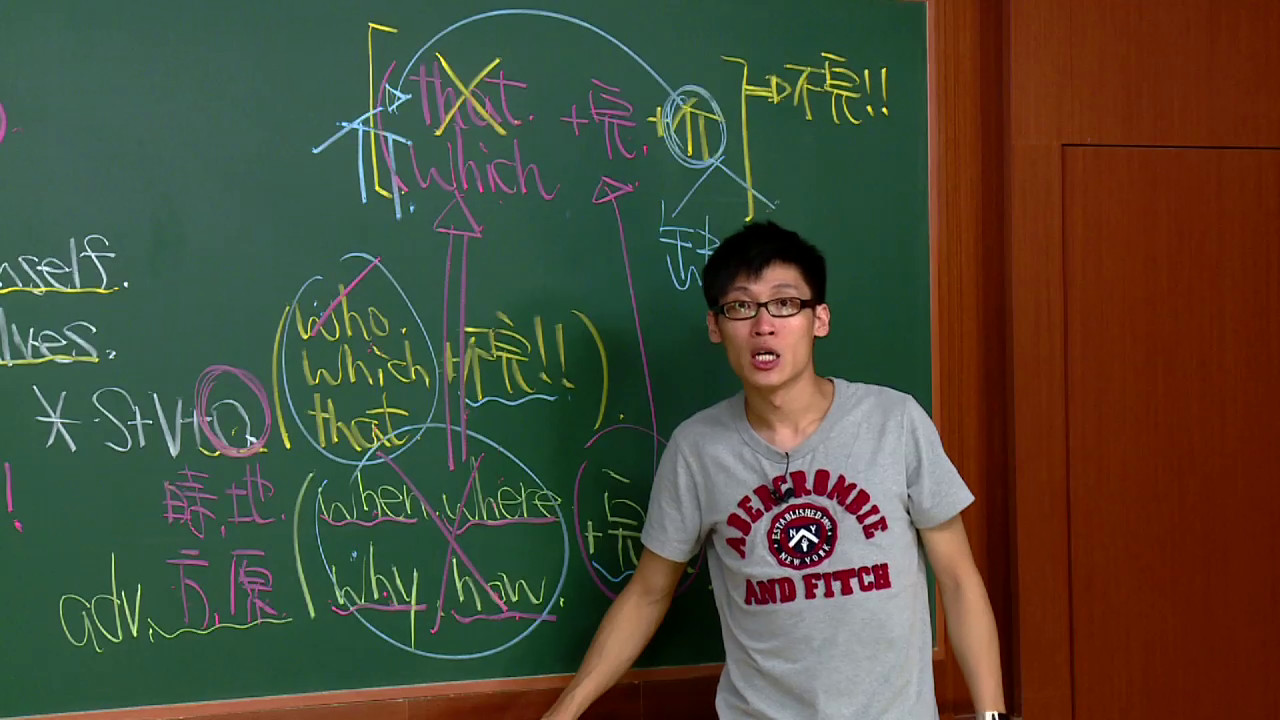 that. +完. +介 ⇒不完!!
介 which
缺
nself.
lves.
who.
which +不完!!
that
* S+V+O
時.地. when.where +完
adv. 方.原 why.how.
!
ABERCROMBIE
ESTABLISHED 1892
N Y
NEW YORK
AND FITCH